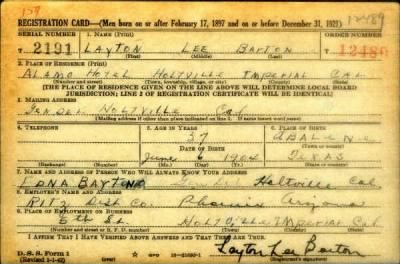 159
REGISTRATION CARD—(Men born on or after February 17, 1897 and on or before December 31, 1921)
12489
SERIAL NUMBER 1. NAME (Print) ORDER NUMBER
T 2191 LAYTON LEE BAXTON 12486
(First) (Middle) (Last)
2. PLACE OF RESIDENCE (Print)
ALAMO HOTEL HOLTVILLE IMPERIAL CAL
(Number and street) (Town, township, village, or city) (County) (State)
[THE PLACE OF RESIDENCE GIVEN ON THE LINE ABOVE WILL DETERMINE LOCAL BOARD
JURISDICTION; LINE 2 OF REGISTRATION CERTIFICATE WILL BE IDENTICAL]
3. MAILING ADDRESS
GEN DEL HOLTVILLE Cal
[Mailing address if other than place indicated on line 2. If same insert word same]
4. TELEPHONE 5. AGE IN YEARS 6. PLACE OF BIRTH
37 ABALENE
DATE OF BIRTH (Town or county)
June 6 1904 TEXAS
(Exchange) (Number) (Mo.) (Day) (Yr.) (State or country)
7. NAME AND ADDRESS OF PERSON WHO WILL ALWAYS KNOW YOUR ADDRESS
EDNA Holtville Cal.
8. EMPLOYER'S NAME AND ADDRESS
RITZ Dist Co. Phoenix Arizona
9. PLACE OF EMPLOYMENT OR BUSINESS
5th St HOLTVILLE IMPERIAL Cal
(Number and street or R. F. D. number) (Town) (County) (State)
I AFFIRM THAT I HAVE VERIFIED ABOVE ANSWERS AND THAT THEY ARE TRUE.
D. S. S. Form 1
(Revised 1-1-42) (over) Layton Lee Baxton
(Registrant's signature)